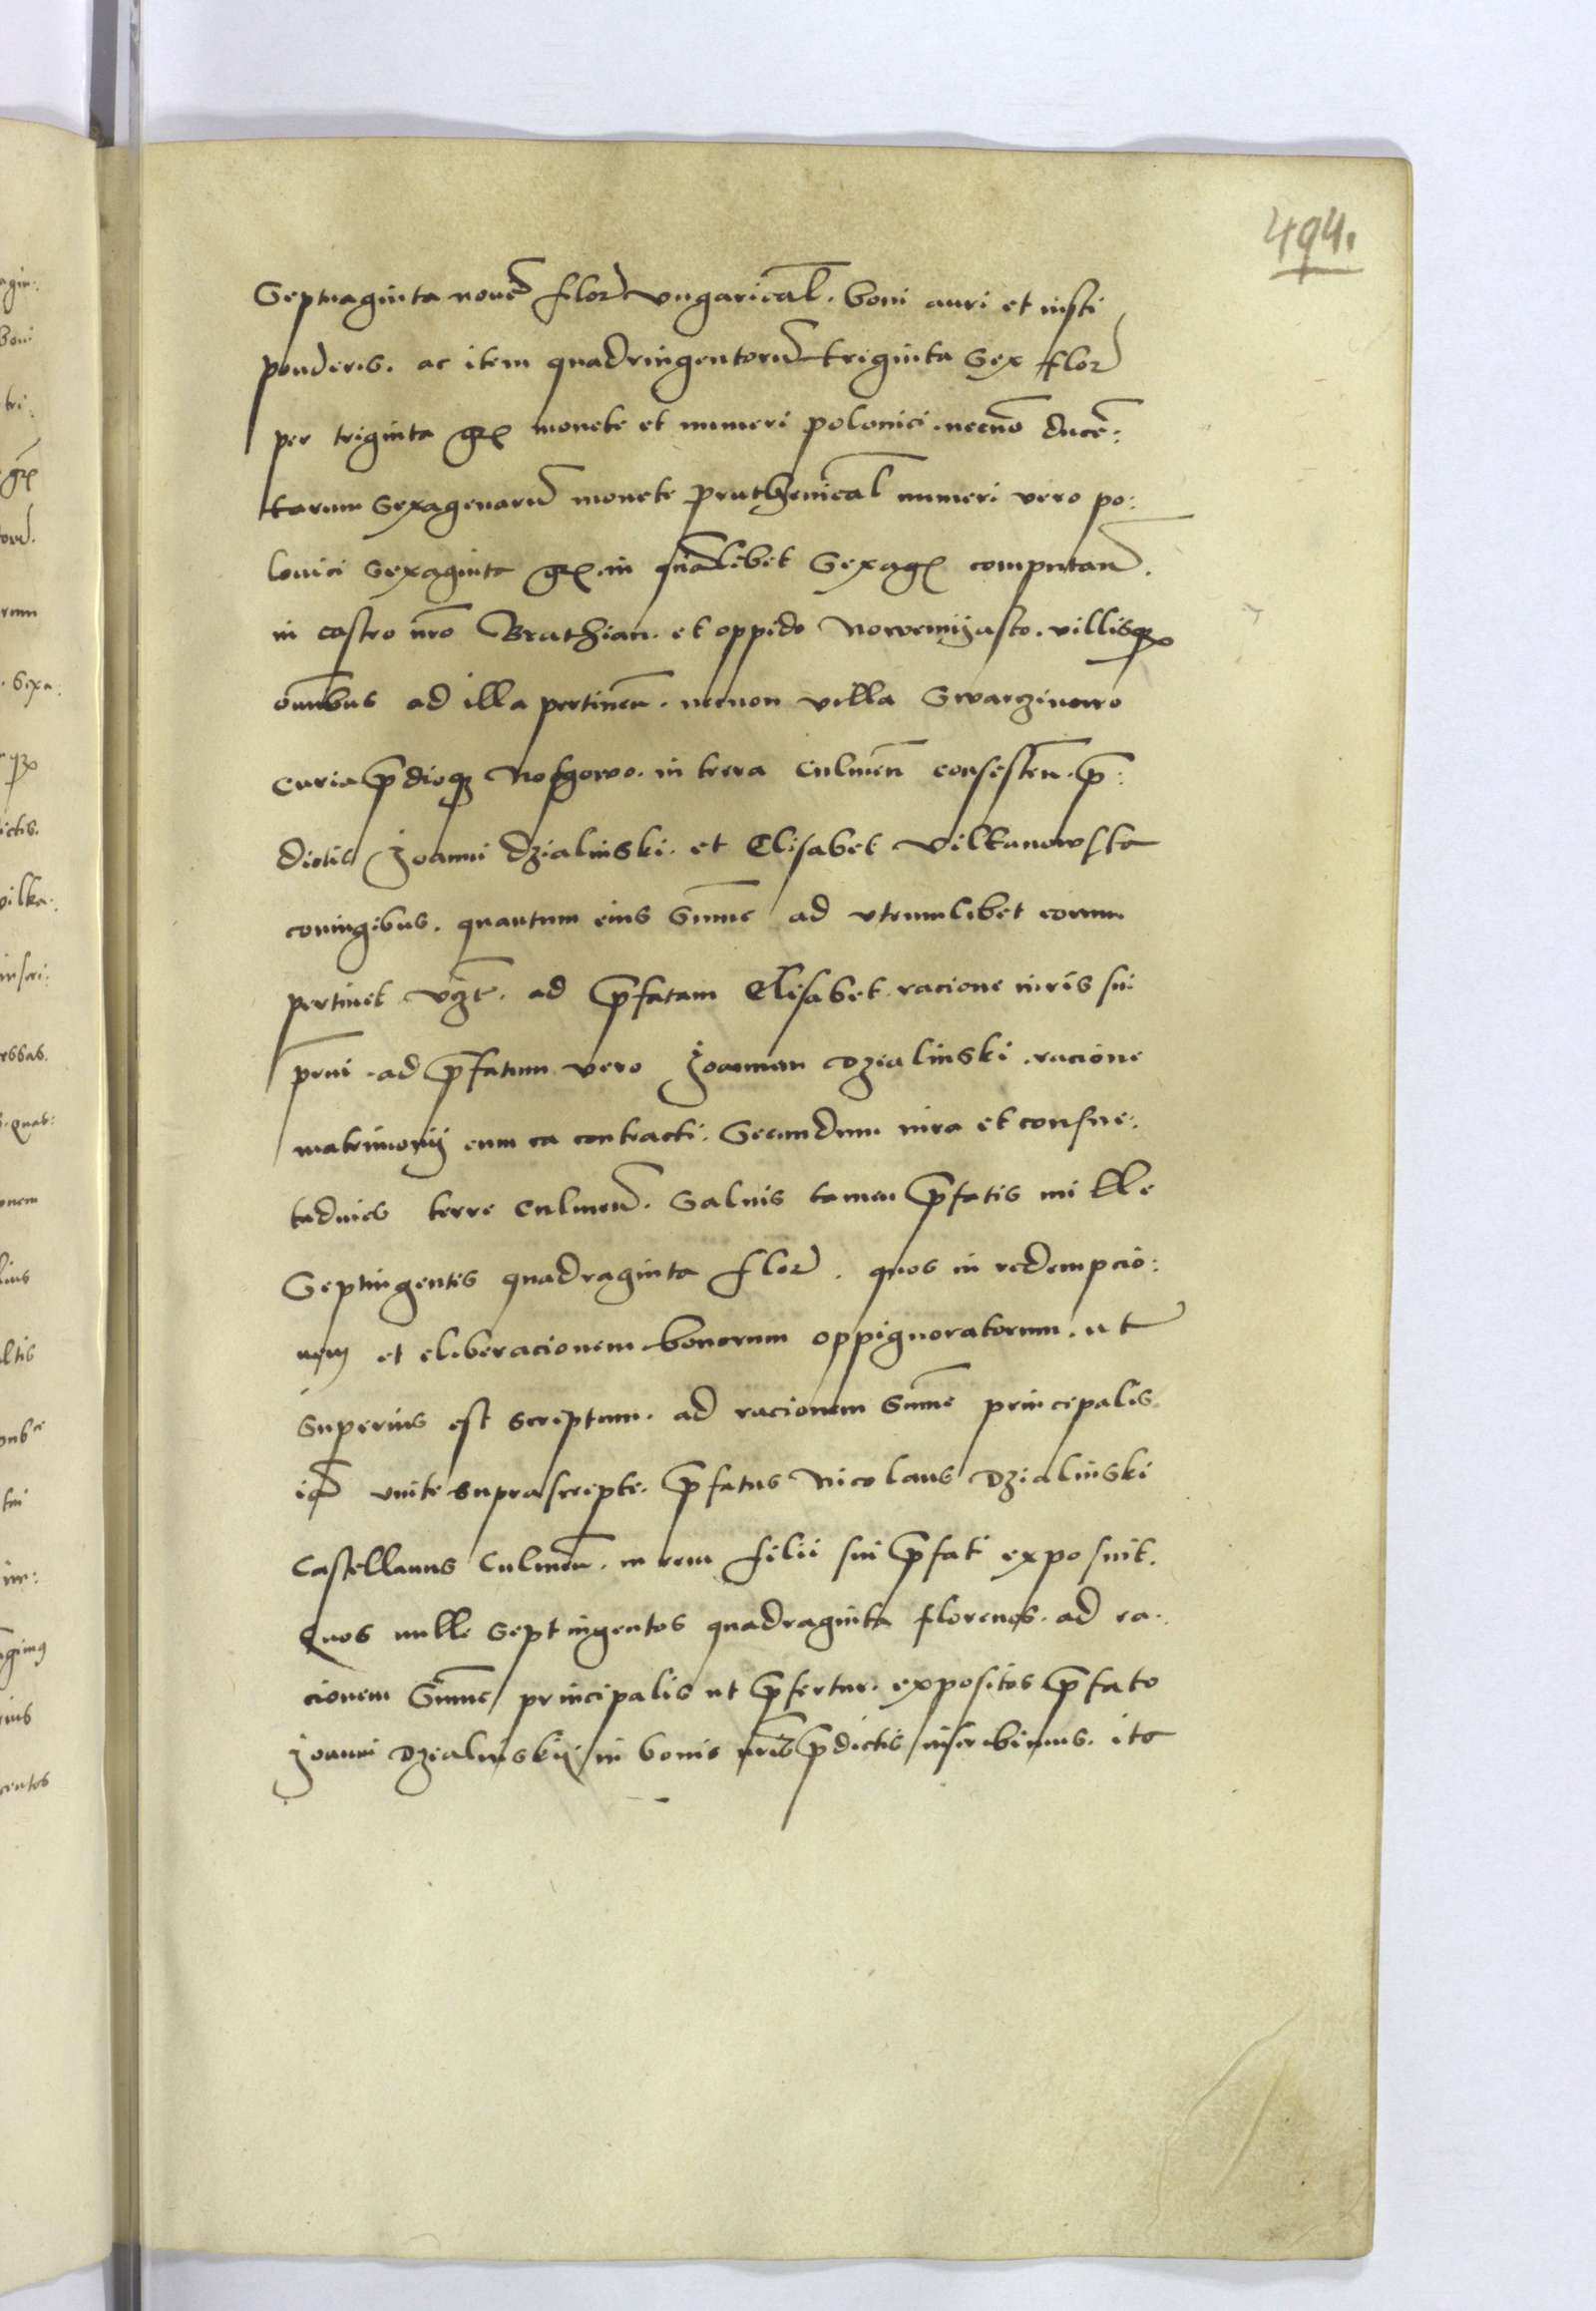 494.
Septuaginta nouē flor vngarical. boni auri et iusti
ponderis. ac item quadringentorū triginta sex flor
per triginta gr monete et numeri polonici. necnō ducē:
tarum sexagenarū monete pruthenical numeri vero po:
lonici sexaginta gr. in qualibet sexag computan.
in castro nro Brathian. et oppido Nowemyasto. villisq
omibus ad illa pertinen. necnon villa Swarzinowo
curia p̄dioq Nosgowo. in terra Culmen consisten. p̄:
dictis Joanni Dzialinski. et Elisabet Vilkanowska
coniugibus. quantum eius summe ad vtrumlibet eorum
pertinet vzt. ad p̄fatam Elisabet racione iuris sui
prni. ad p̄fatum vero Joannem Dzialinski. racione
matrimonij cum ea contracti. Secundum iura et consue:
tudines terre Culmen. Saluis tamen p̄fatis mille
Septingentis quadraginta flor. quos in redempcio:
nem et eliberacionem bonorum oppignoratorum. ut
superius est scriptum. ad racionem summe principalis
 vnite suprascripte. p̄fatus Nicolaus Dzialinski
Castellanus Culmen. in rem filii sui p̄fati exposuit.
Quos mille septingentos quadraginta florenos. ad ra:
cionem summe principalis ut p̄fertur. expositos p̄fato
Joanni Dzialinskij in bonis nris p̄dictis inscribimus. ita